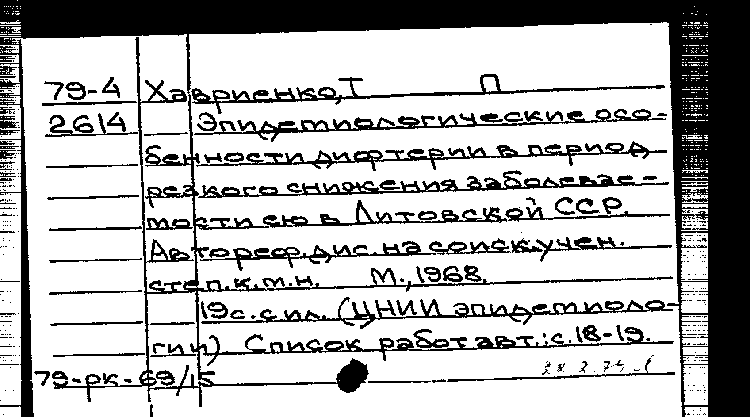 79-4 Хавриенко, Т П
2614 Эпидемиологические осо-
бенности дифтерии в период
резкого снижения заболевае-
мости ею в Литовской ССР.
Автореф. дис. на соиск. учен.
степ. к. м. н. М., 1968.
19 с. с ил. (ЦНИИ эпидемиоло-
гии). Список работ авт.: с. 18-19.
79-рк-69/15